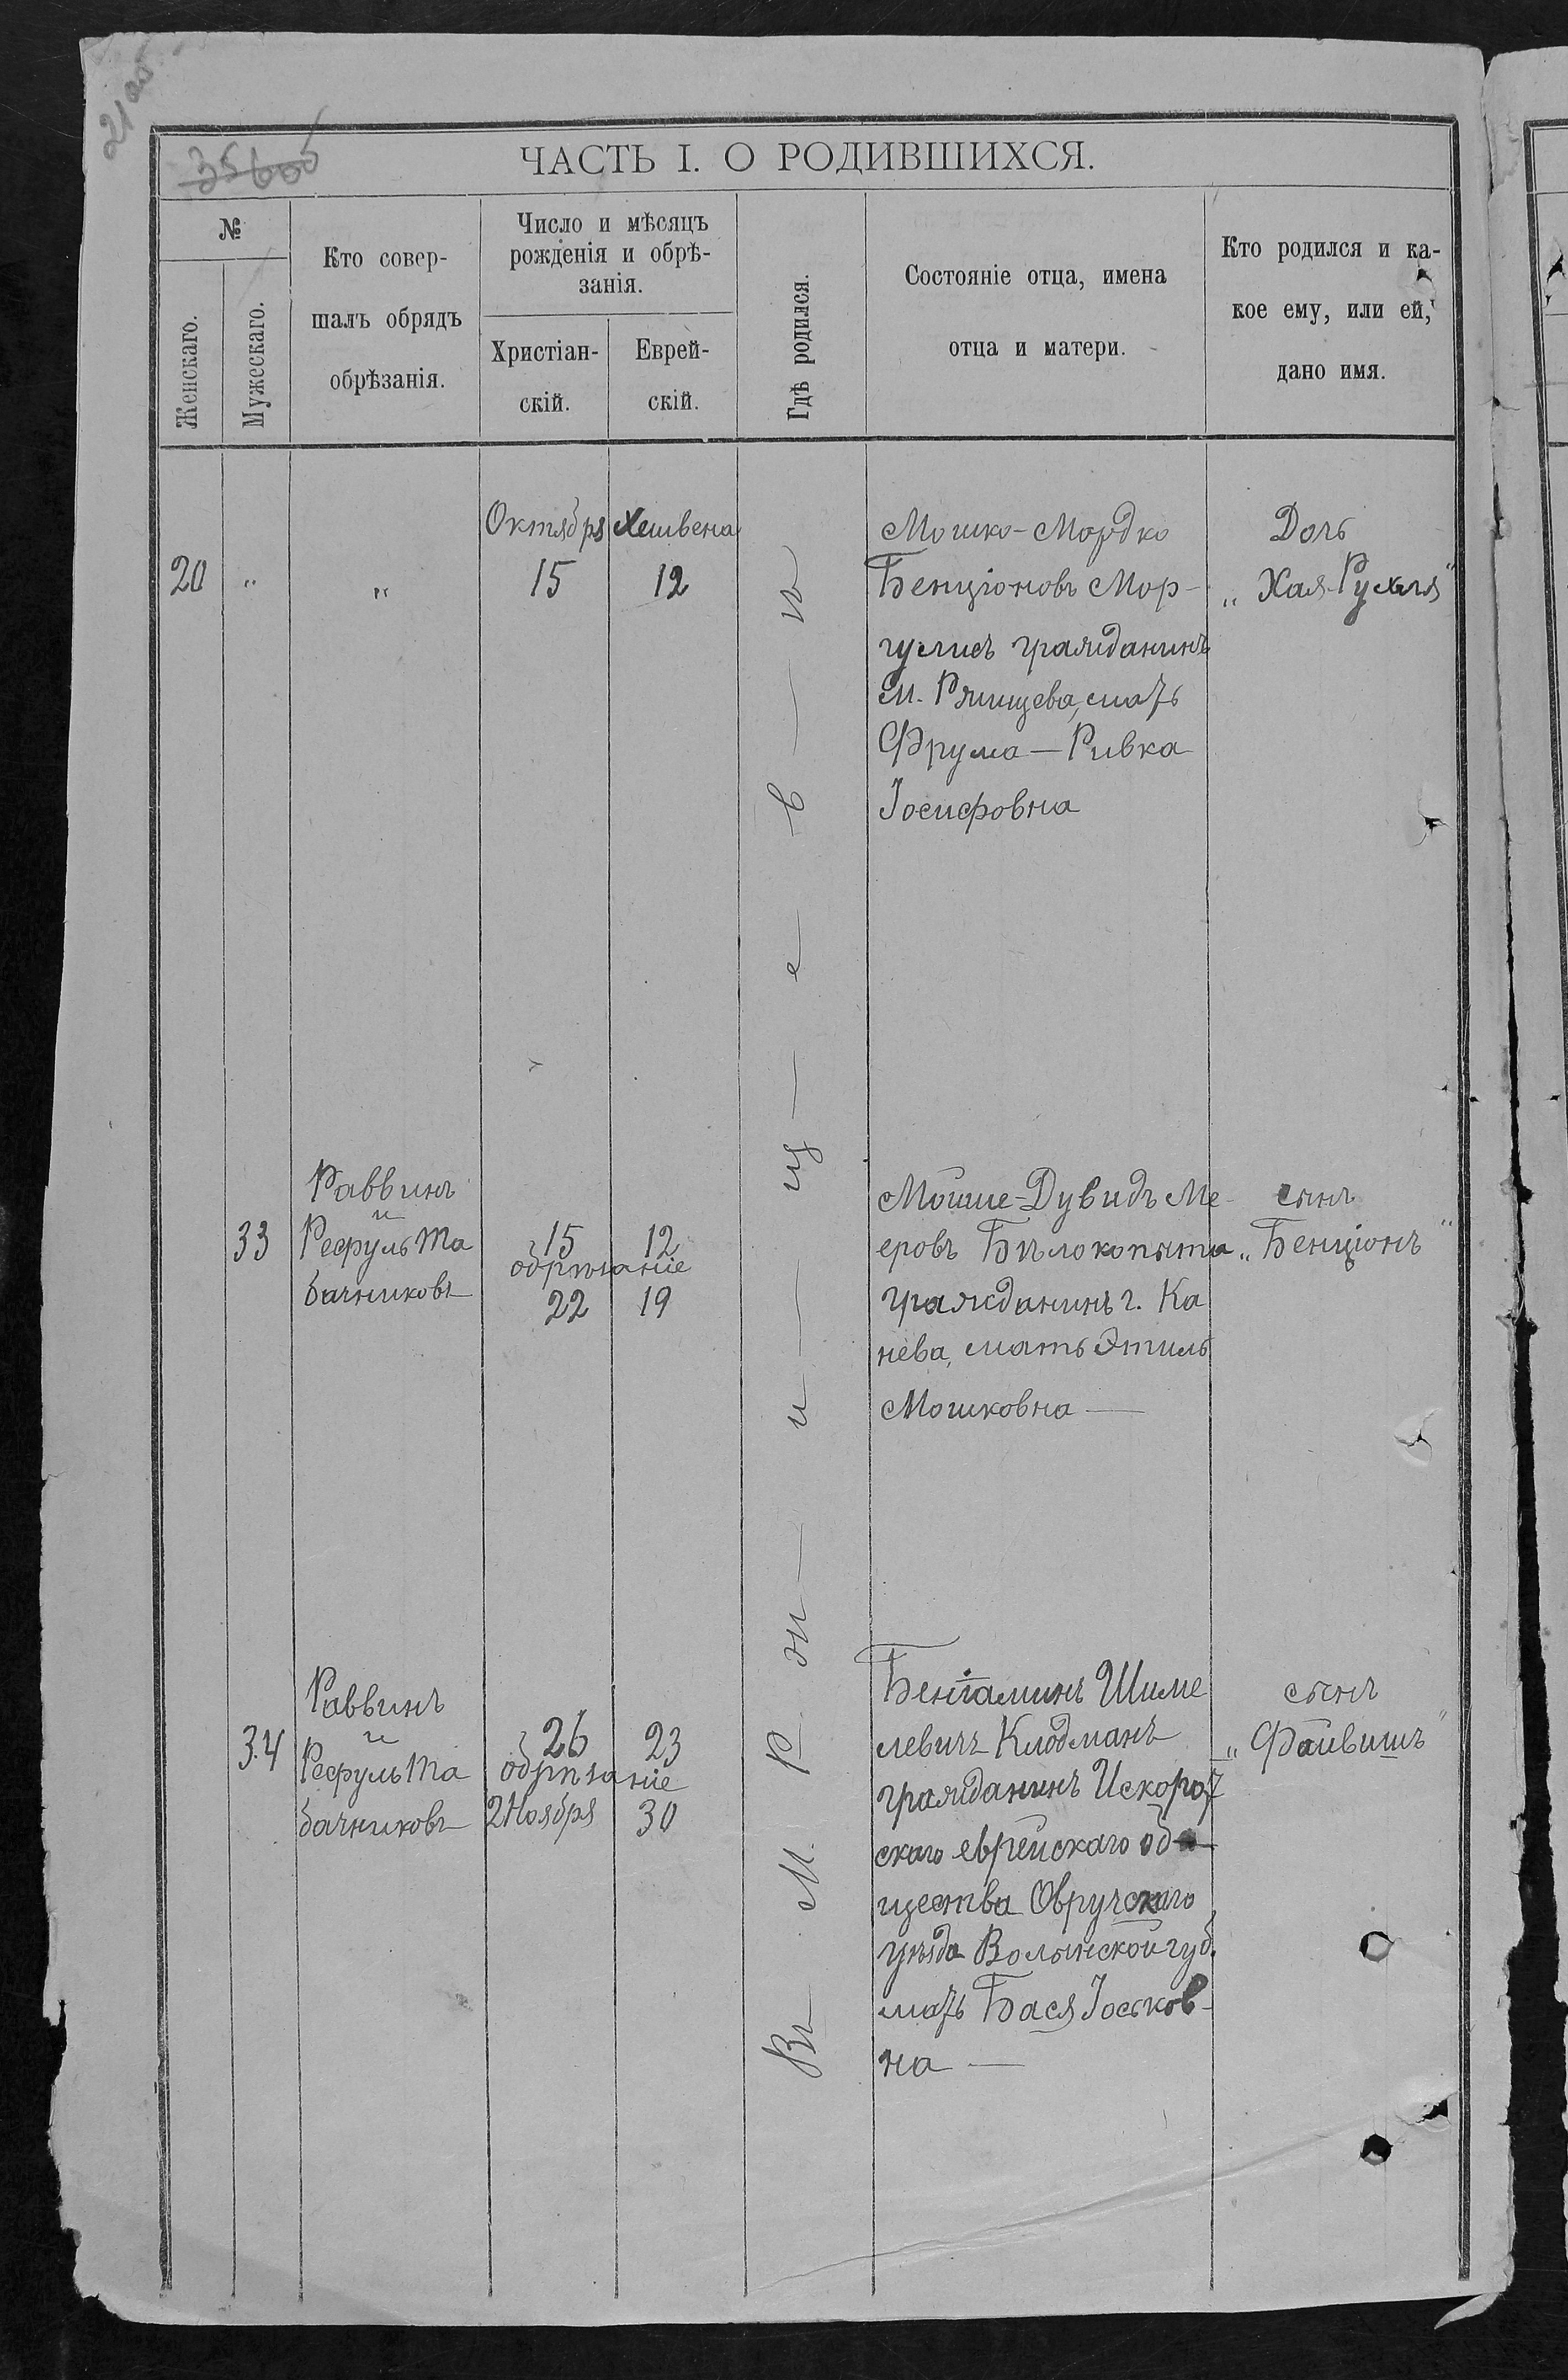 21 об
35 боб
ЧАСТЬ I. О РОДИВШИХСЯ.
№
Женскаго.
Мужескаго.
Кто совер-
шалъ обрядъ
обрѣзанія.
Число и мѣсяцъ
рожденія и обрѣ-
занія.
Христіан-
скій.
Еврей-
скій.
Гдѣ родился.
Состояніе отца, имена
отца и матери.
Кто родился и ка-
кое ему, или ей,
дано имя.
Въ М. Р
20
"
"
Октября
15
Хешвена
12
Мошко-Мордко
Бенціоновъ Мор-
гулисъ гражданинъ
м. Ржищева, мать
Фрума — Ривка
Іосифовна
Дочь
„Хая-Рухля"
33
Раввинъ
и
Рефуль Та
бачниковъ
15 12
обрѣзаніе
22 19
Мойше-Дувидъ Ме-
еровъ Бѣлокопыта
гражданинъ г. Ка
нева, мать Этиль
Мошковна —
сынъ
„Бенціонъ"
34
Раввинъ
и
Рефуль Та
бачниковъ
26 23
обрѣзаніе
2 Ноября 30
Беніаминъ Шиме
левичъ Клодманъ
гражданинъ Искорот
скаго еврейскаго об-
щества Овручскаго
уѣзда Волынской губ.
мать Бася Іоськов-
на —
сынъ
„Файвишъ"